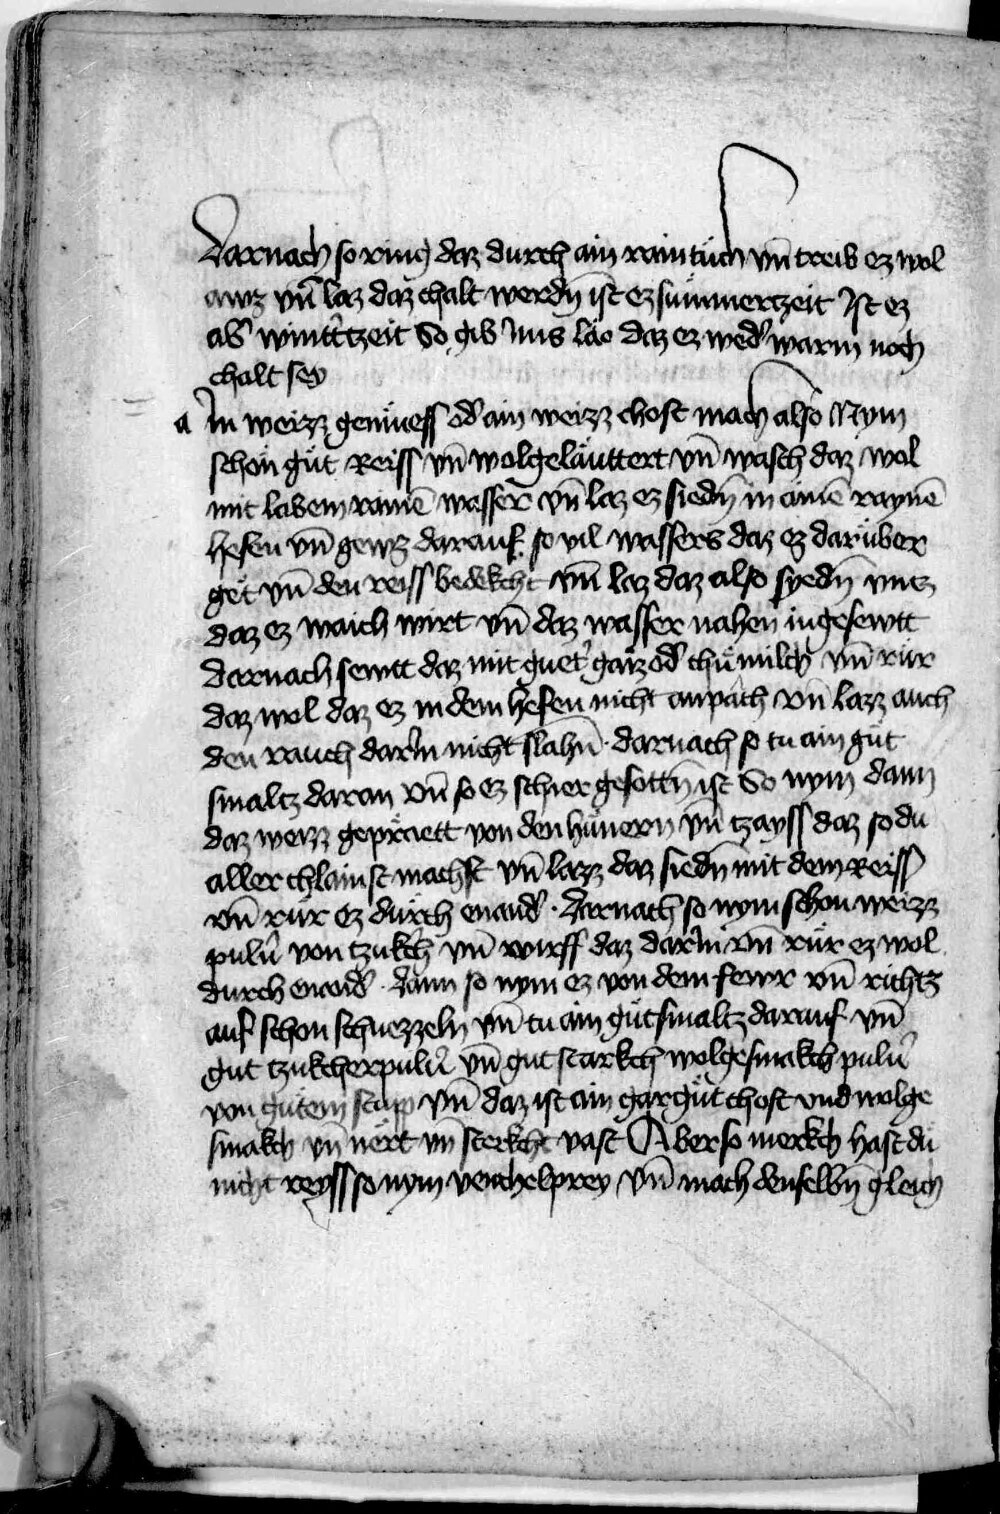 Darnach so ring daz durch ain rain tuch vn̄ treib ez wol
awz vn̄ laz daz chalt werdn̄ ist ez sum̄mertzeit Ist ez
ab̉ wintt̉tzeit So gib Ims läo daz ez wed̉ warm noch
chalt sey
a In weizz gemüess od̉ ain weizz chost mach also Nym
schön güt Reiss vn̄ wolgeläuttert vn̄ wasch daz wol
mit labem rainē wasser vn̄ laz ez siedn̄ in ainē raynē
hefen vn̄ gewz darauf so vil wassers daz ez darüber
get vn̄ den reiss bedekcht vnd laz daz also syedn̄ vntz
daz ez waich wirt vn̄ daz wasser nahen ingesewtt
darnach sewtt daz mit guet̉ gaiz od̉ chü milch vn̄ rür
daz wol daz ez in dem hefen nicht anpäch vn̄ lazz auch
den rauch darin nicht slahn̄ · darnach so tu ain güt
smaltz daran vn̄ so ez schier gesottn̄ ist So nym dann
daz weizz gepräett von den hünern vn̄ tzayss daz so du
aller chlainst machst vn̄ lazz daz siedn̄ mit dem Reiss
vn̄ rür ez dürch enand̉ · Darnach so nym schon weizz
pulủ von tzukch̉ vn̄ wirff daz darin vn̄ rür ez wol
durch enand̉ · Dann so nym ez von dem fewr vn̄ richtz
auf schon schuezzeln vn̄ tu ain güt smaltz darauf vn̄
gut tzukcherpulủ vn̄ gut starkch wolgesmakch pulủ
von gütem stupp vn̄ daz ist ain gar güt chost vnd wolge
smakch vn̄ nert vn̄ sterkcht vast Aber so merkch hast dü
nicht reyss so nym venchelprey vn̄ mach denselbn̄ gleich